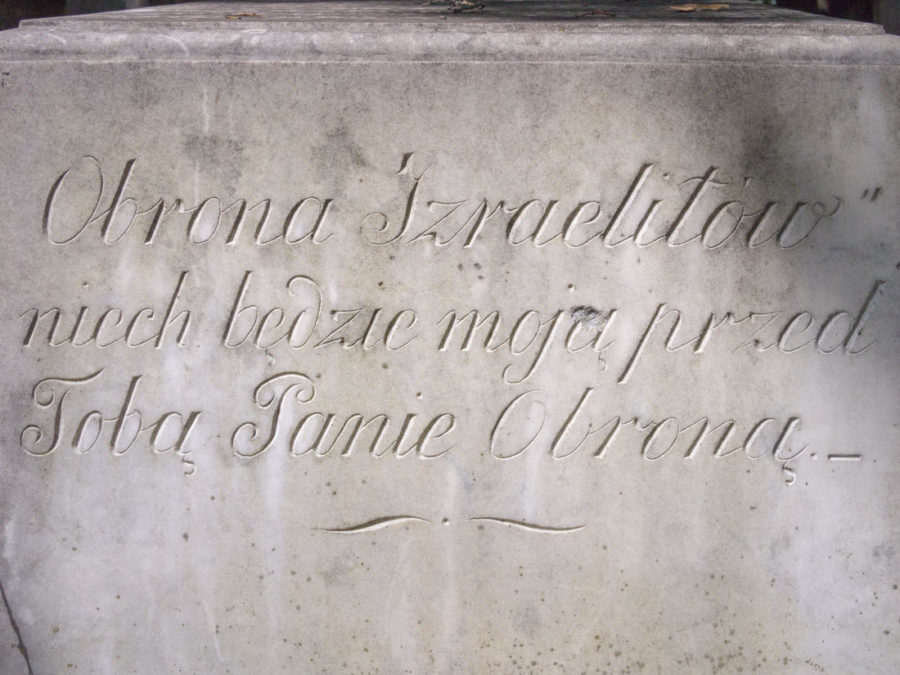 Obrona Izraelitów"
niech będzie moją przed
Tobą Panie Obroną._